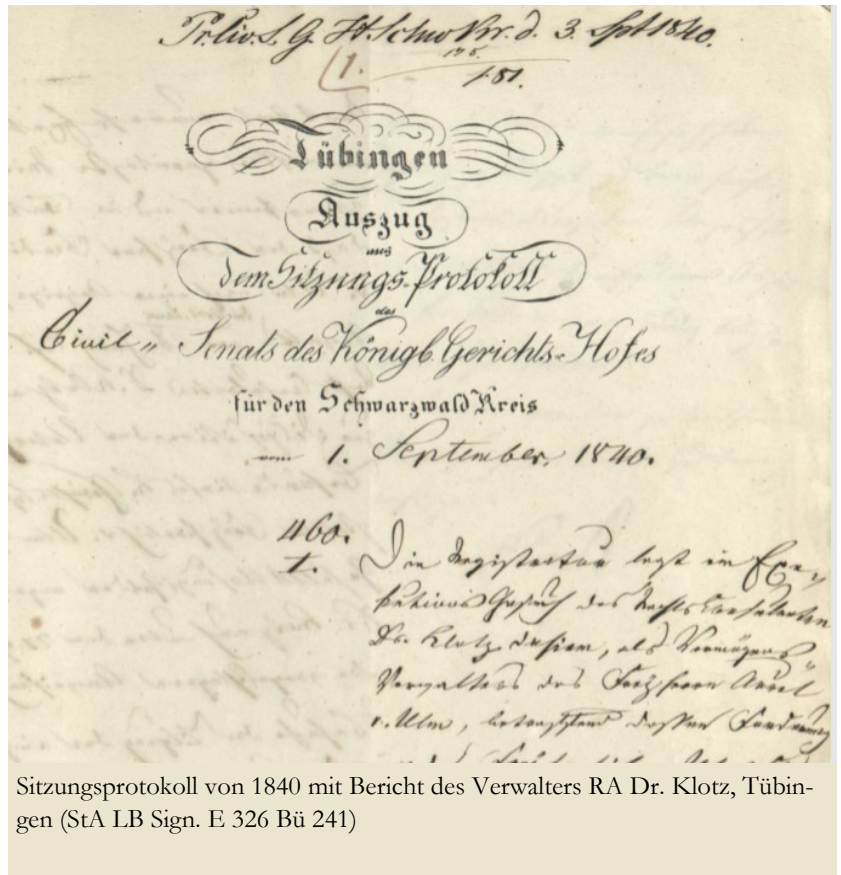 d. 3. Spt 1840.
1.
181.
Tübingen
Auszug
aus
dem Sitzungs-Protokoll
des
Civil „ Senats des Königl. Gerichts-Hofes
für den Schwarzwald Kreis
vom 1. September 1840.
460.
1.
Die Registratur legt ein Exe-
kutions Gesuch des Rechts Consulenten
Dr. Klotz dahier, als Vermögens
Verwalters des Freiherrn Aurel
v. Ulm, betreffend dessen Forderung
Sitzungsprotokoll von 1840 mit Bericht des Verwalters RA Dr. Klotz, Tübin-
gen (StA LB Sign. E 326 Bü 241)